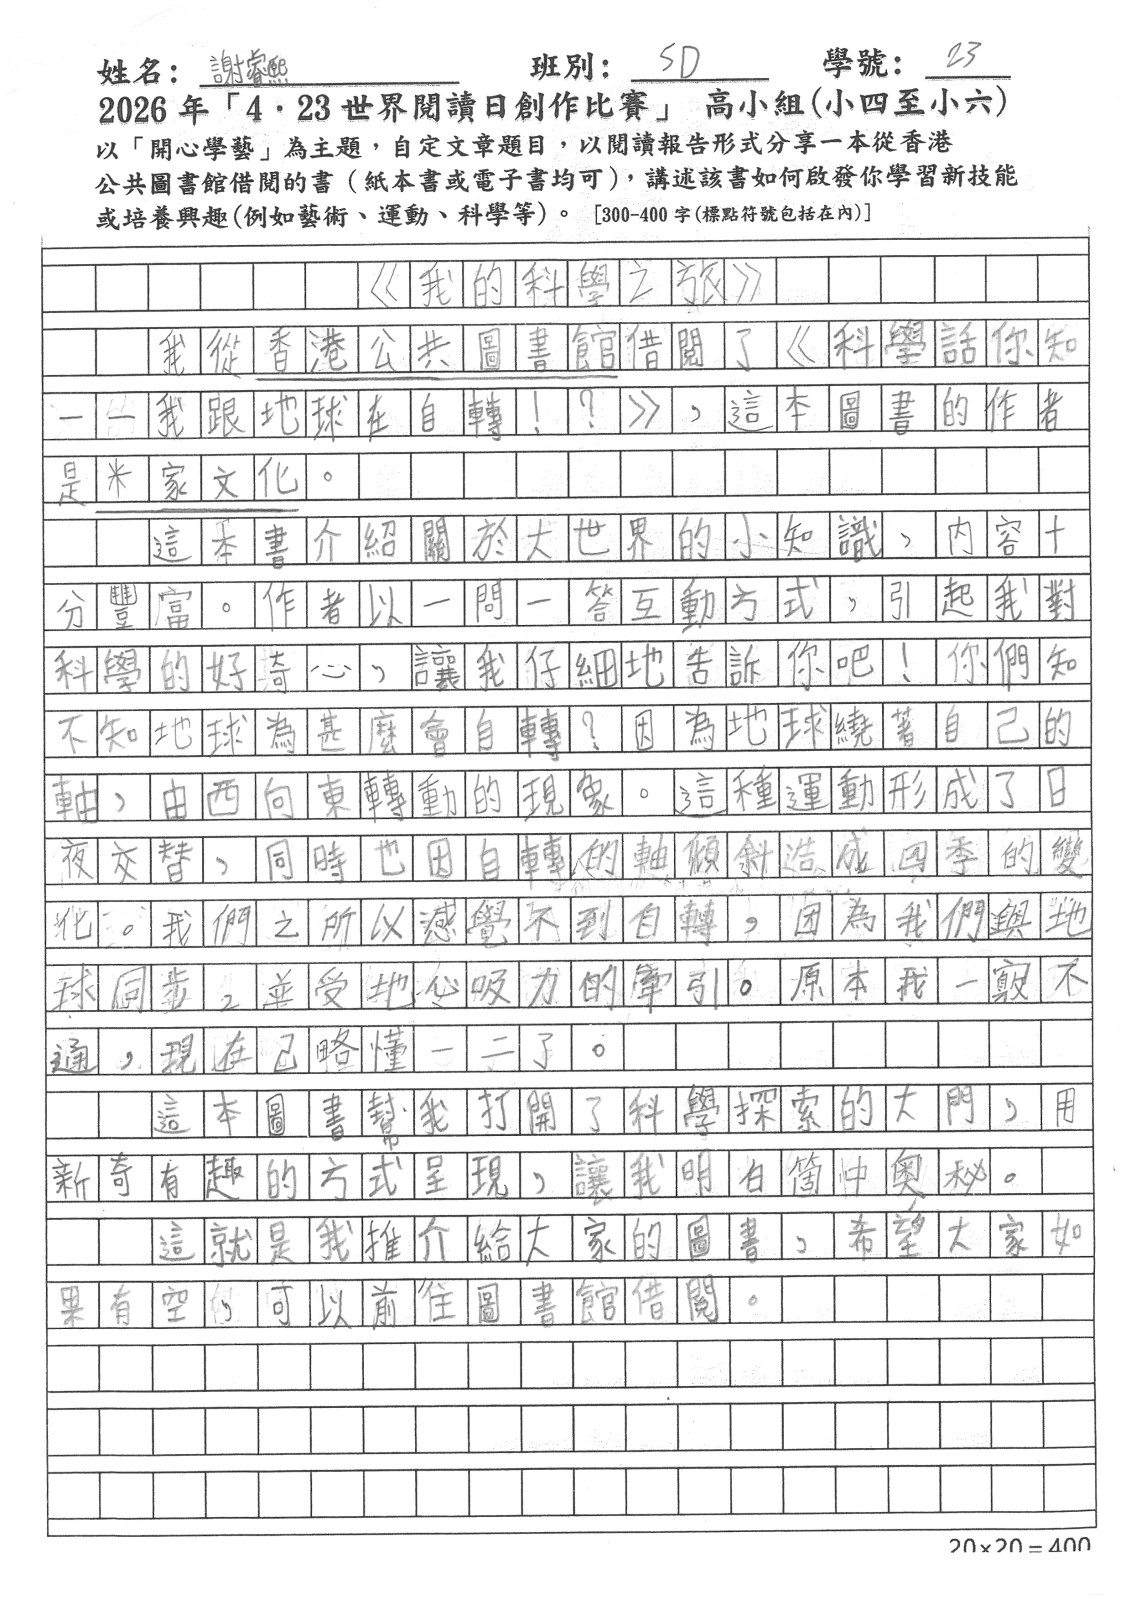 姓名：謝睿熙 班別：5D 學號：23
2026 年「4．23 世界閱讀日創作比賽」 高小組(小四至小六)
以「開心學藝」為主題，自定文章題目，以閱讀報告形式分享一本從香港
公共圖書館借閱的書（紙本書或電子書均可），講述該書如何啟發你學習新技能
或培養興趣(例如藝術、運動、科學等)。 [300-400 字(標點符號包括在內)]
《我的科學之旅》
我從香港公共圖書館借閱了《科學話你知
——我跟地球在自轉！？》，這本圖書的作者
是米家文化。
這本書介紹關於大世界的小知識，內容十
分豐富。作者以一問一答互動方式，引起我對
科學的好奇心，讓我仔細地告訴你吧！你們知
不知地球為甚麼會自轉？因為地球繞著自己的
軸，由西向東轉動的現象。這種運動形成了日
夜交替，同時也因自轉的軸傾斜造成四季的變
化。我們之所以感覺不到自轉，因為我們與地
球同步，並受地心吸力的牽引。原本我一竅不
通，現在已略懂一二了。
這本圖書幫我打開了科學探索的大門，用
新奇有趣的方式呈現，讓我明白箇中奧秘。
這就是我推介給大家的圖書，希望大家如
果有空，可以前往圖書館借閱。
20×20＝400